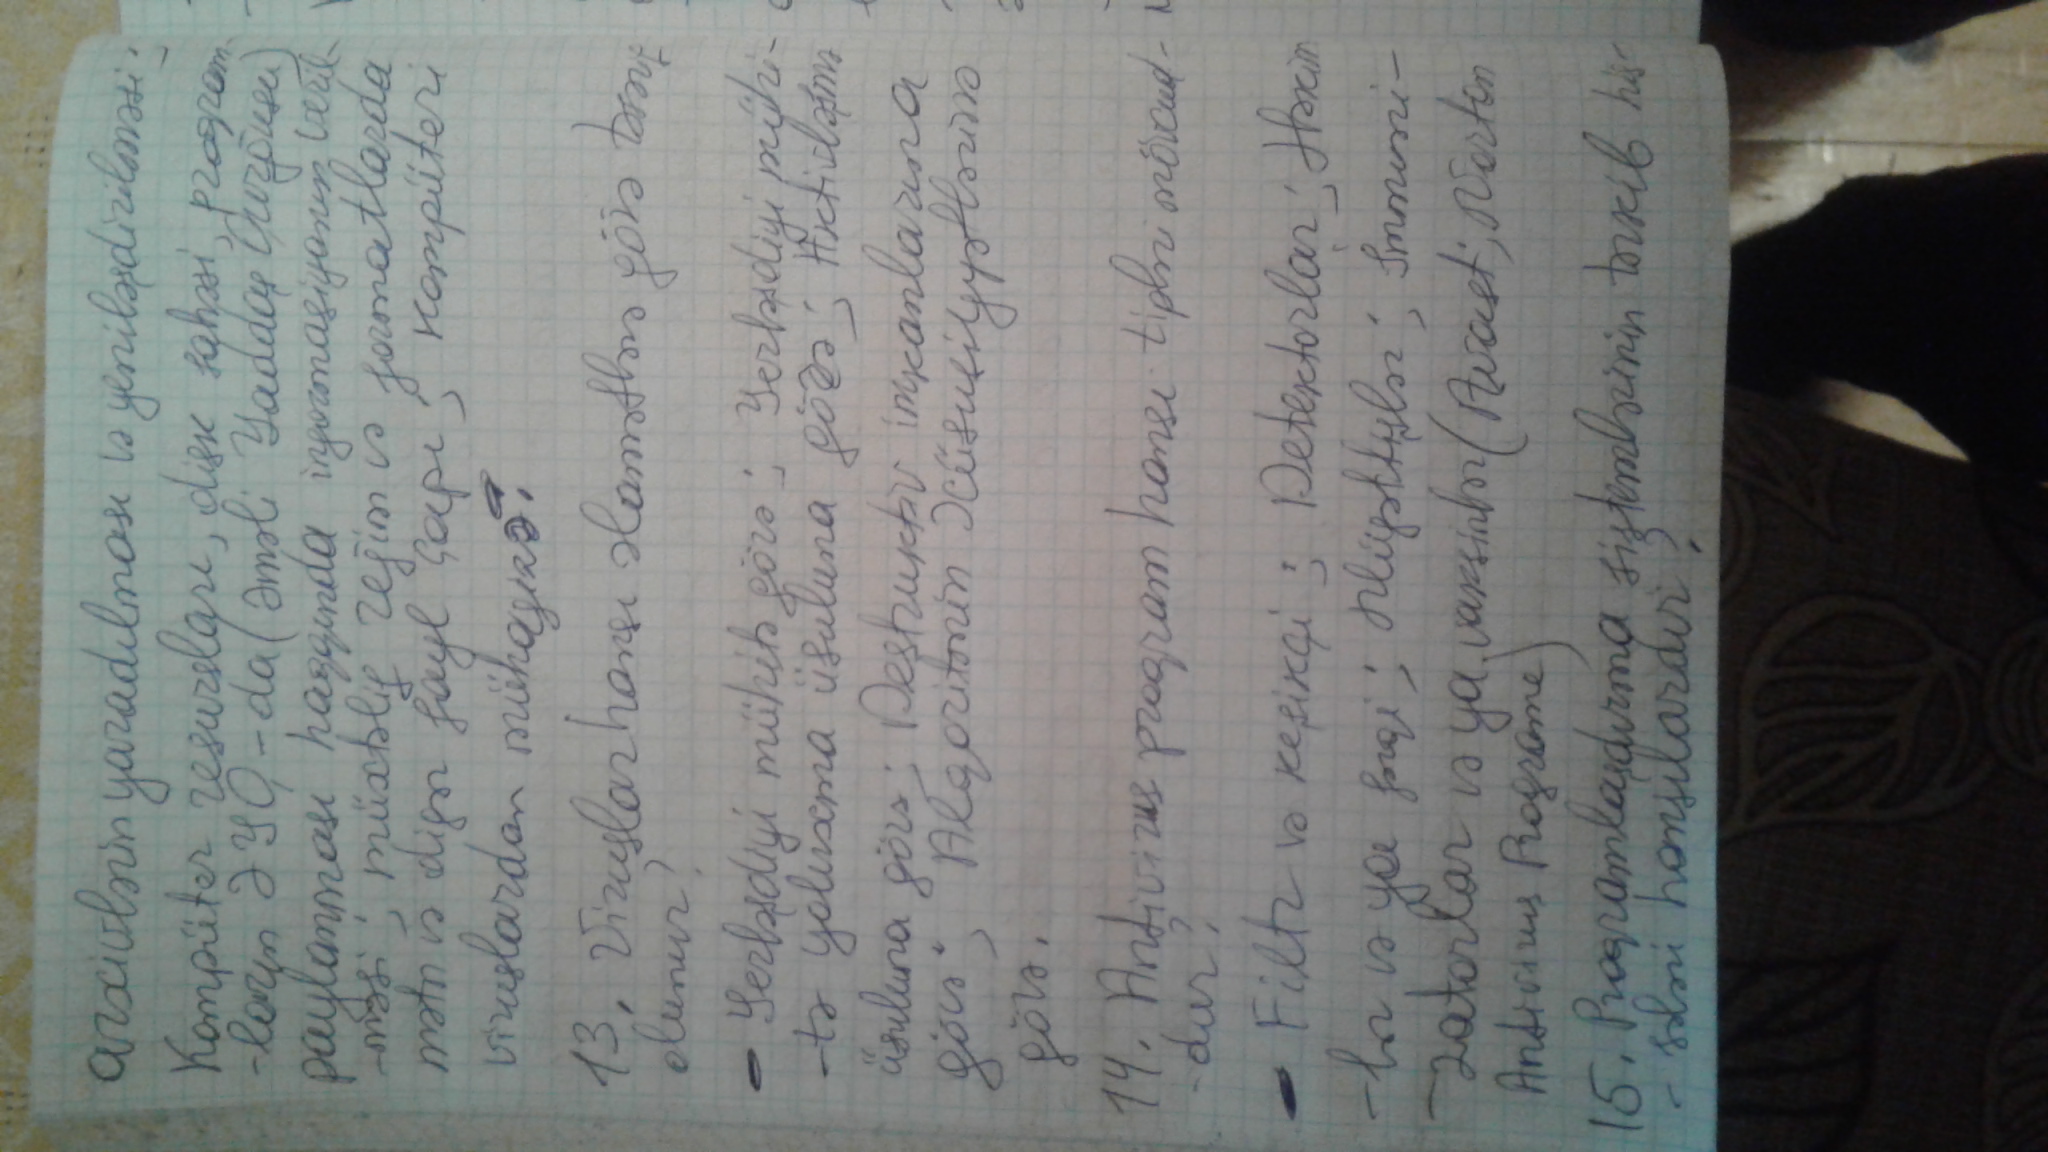 arxivlərin yaradılması və yeniləşdirilməsi;
Kompüter resursları, disk sahəsi, proqram-
-ların ƏYQ-da (Əməli Yaddaş Qurğusu)
paylanması haqqında informasiyanın veril-
-məsi; müxtəlif rejim və formatlarda
mətn və digər fayl çapı; Kompüteri
viruslardan mühafizə.
13. Viruslar hansı əlamətlərə görə təsnif
olunur?
- Yerləşdiyi mühitə görə; Yerləşdiyi mühi-
-tə yoluxma üsuluna görə; Aktivləşmə
üsuluna görə; Destruktiv imkanlarına
görə; Alqoritmin Xüsusiyyətlərinə
görə.
14. Antivirus proqram hansı tipləri mövcud-
-dur?
- Filtr və keşikçi; Detektorlar; Həkim
-lər və ya faqi; Müfəttişlər; İmmuni-
-zatorlar və ya vaksinlər (Avast; Norton
Antivirus Programe)
15. Proqramlaşdırma sistemlərinin tərkib his-
-sələri hansılardır?